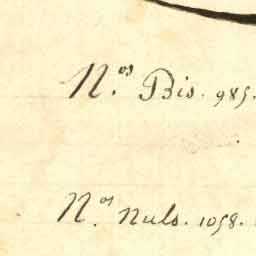 N.os Bis. 985.
N.os Nuls. 1058.